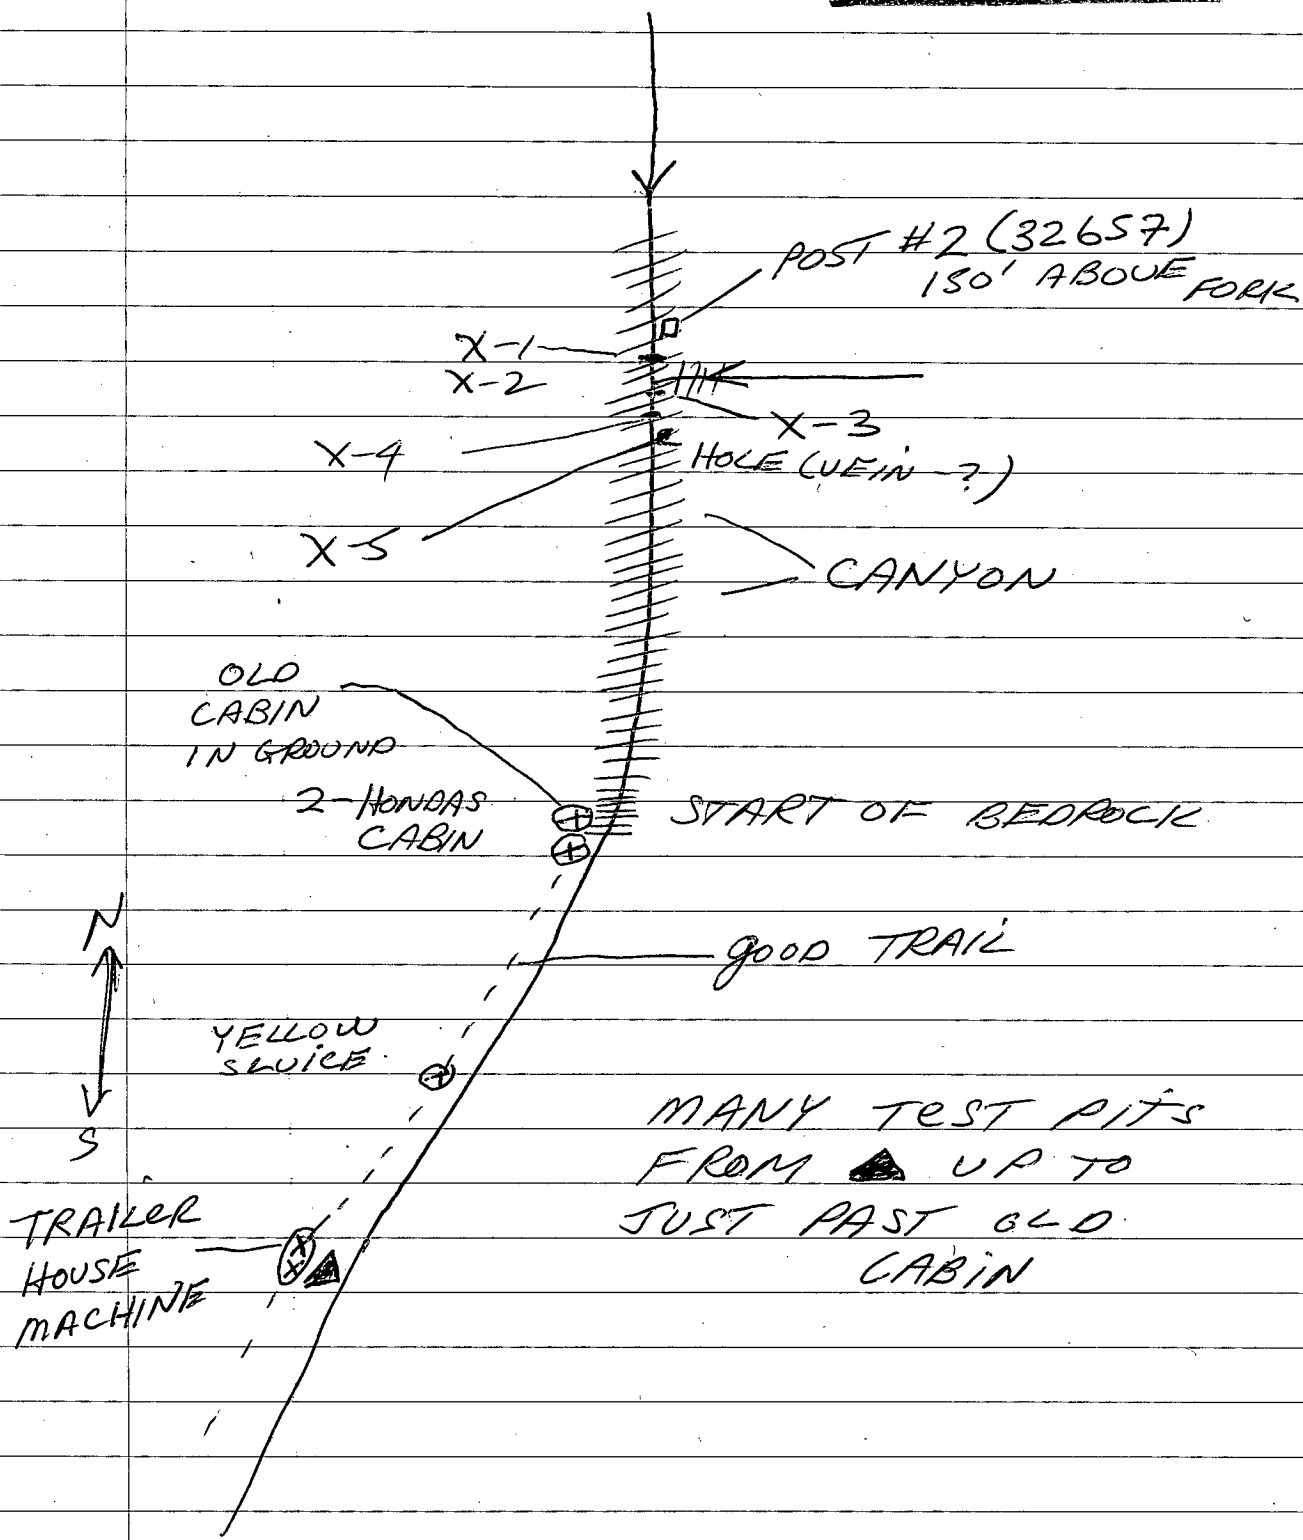 POST #2 (32657)
150' ABOVE FORK
X-1
X-2
X-3
X-4
HOLE (VEIN-?)
X-5
CANYON
OLD
CABIN
IN GROUND
2-HONDAS
CABIN
START OF BEDROCK
N
GOOD TRAIL
YELLOW
SLUICE
S
MANY TEST PITS
FROM ▲ UP TO
JUST PAST OLD
CABIN
TRAILER
HOUSE
MACHINE